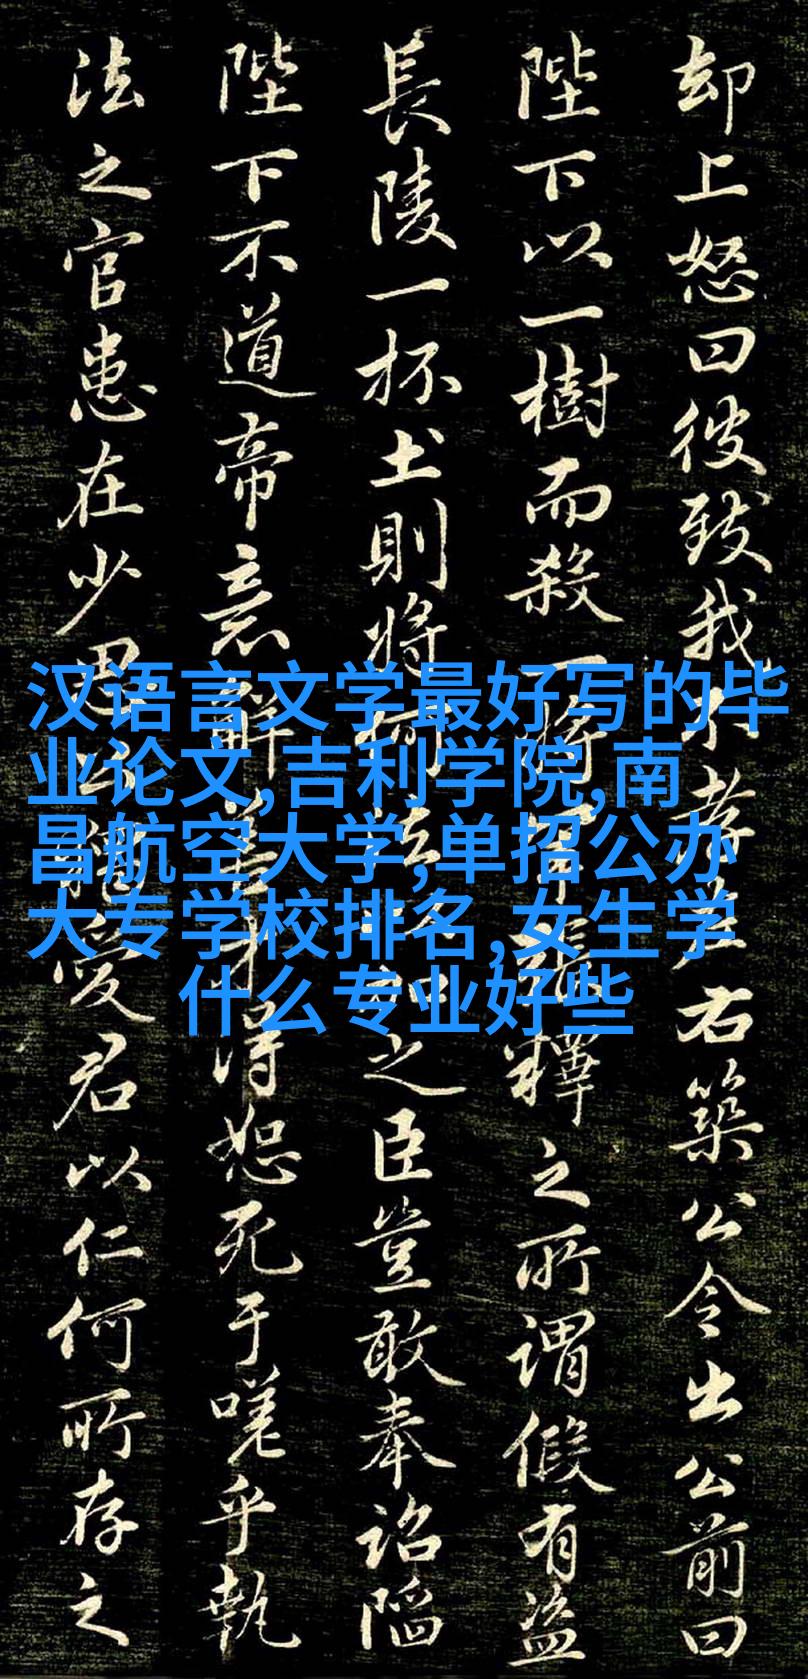 却上怒曰彼致我不孝左右築公令出公前曰
陛下以一樹而殺一將軍張釋之所謂假有盜
長陵一杯土則將何法以加之臣豈敢奉詔陷
陛下不道帝意解得恕死于嗟乎執
法之官患在少恩公獨愛君以仁何所存之
汉语言文学最好写的毕
业论文,吉利学院,南
昌航空大学,单招公办
大专学校排名,女生学
什么专业好些